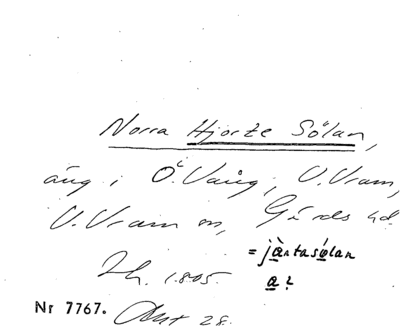 Norra Hjorte Sölan,
äng i Ö. Vång, V. Vram,
V. Vram sn, Gärds hd.
Lh. 1805.
= jàntasølan
a?
Nr 7767. Akt 28.